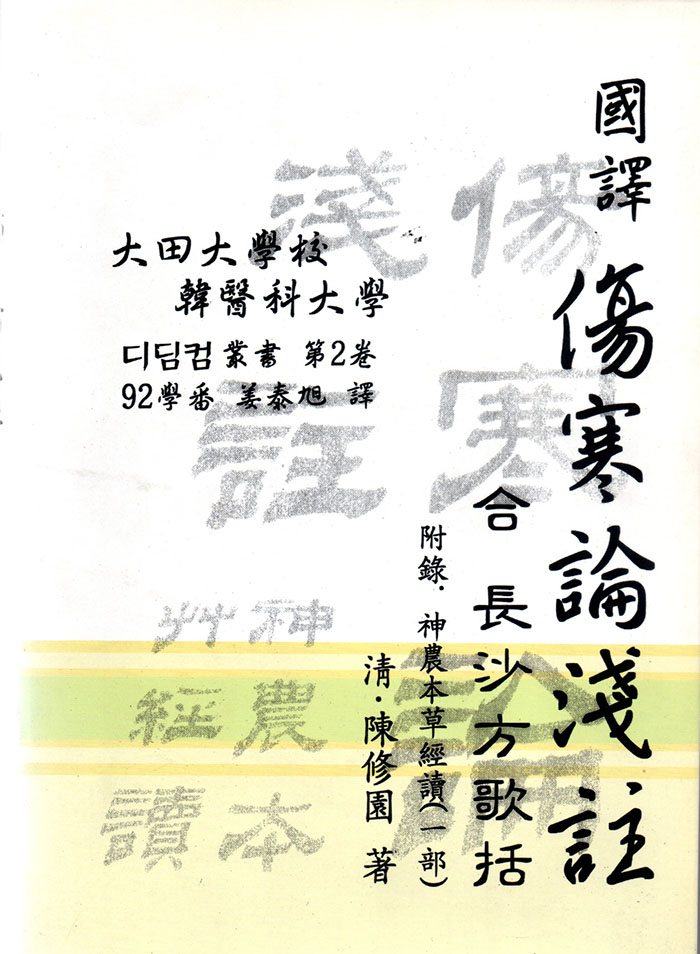 國譯 傷寒論淺註
合 長沙方歌括
附錄·神農本草經讀(一部)
淸·陳修園 著
大田大學校
韓醫科大學
디딤컴 叢書 第2卷
92學番 姜泰旭 譯
傷寒論
淺註
神農本
艸經讀